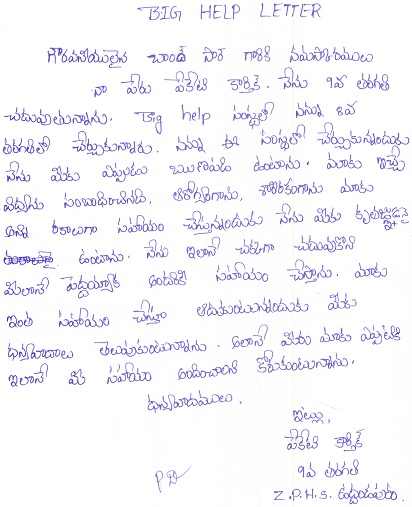 BIG HELP LETTER
గౌరవనీయులైన చాంద్ సార్ గారికి నమస్కారములు
నా పేరు పేకేటి కార్తీక్. నేను 9వ తరగతి
చదువుతున్నాను. Big help సంస్థలో నన్ను 8వ
తరగతిలో చేర్చుకున్నారు. నన్ను ఈ సంస్థలో చేర్చుకున్నందుకు
నేను మీకు ఎప్పుడు ఋణపడి ఉంటాను. మాకు ఇచ్చే
విద్యను సంబంధించినది, ఆరోగ్యంగాను, శారీరకంగాను మాకు
అన్ని రకాలుగా సహాయం చేస్తున్నందుకు నేను మీకు కృతజ్ఞుడనై
ఉంటాను. నేను ఇలానే చక్కగా చదువుకొని
మీలానే పెద్దయ్యాక అందరికి సహాయం చేస్తాను. మాకు
ఇంత సహాయం చేస్తూ ఆదుకుంటున్నందుకు మీకు
ధన్యవాదాలు తెలుపుకుంటున్నాను. అలానే మీరు మాకు ఎప్పటికి
ఇలానే మీ సహాయం అందించాలని కోరుకుంటున్నాను.
ధన్యవాదములు.
ఇట్లు,
పేకేటి కార్తీక్
9వ తరగతి
Z.P.H.S.